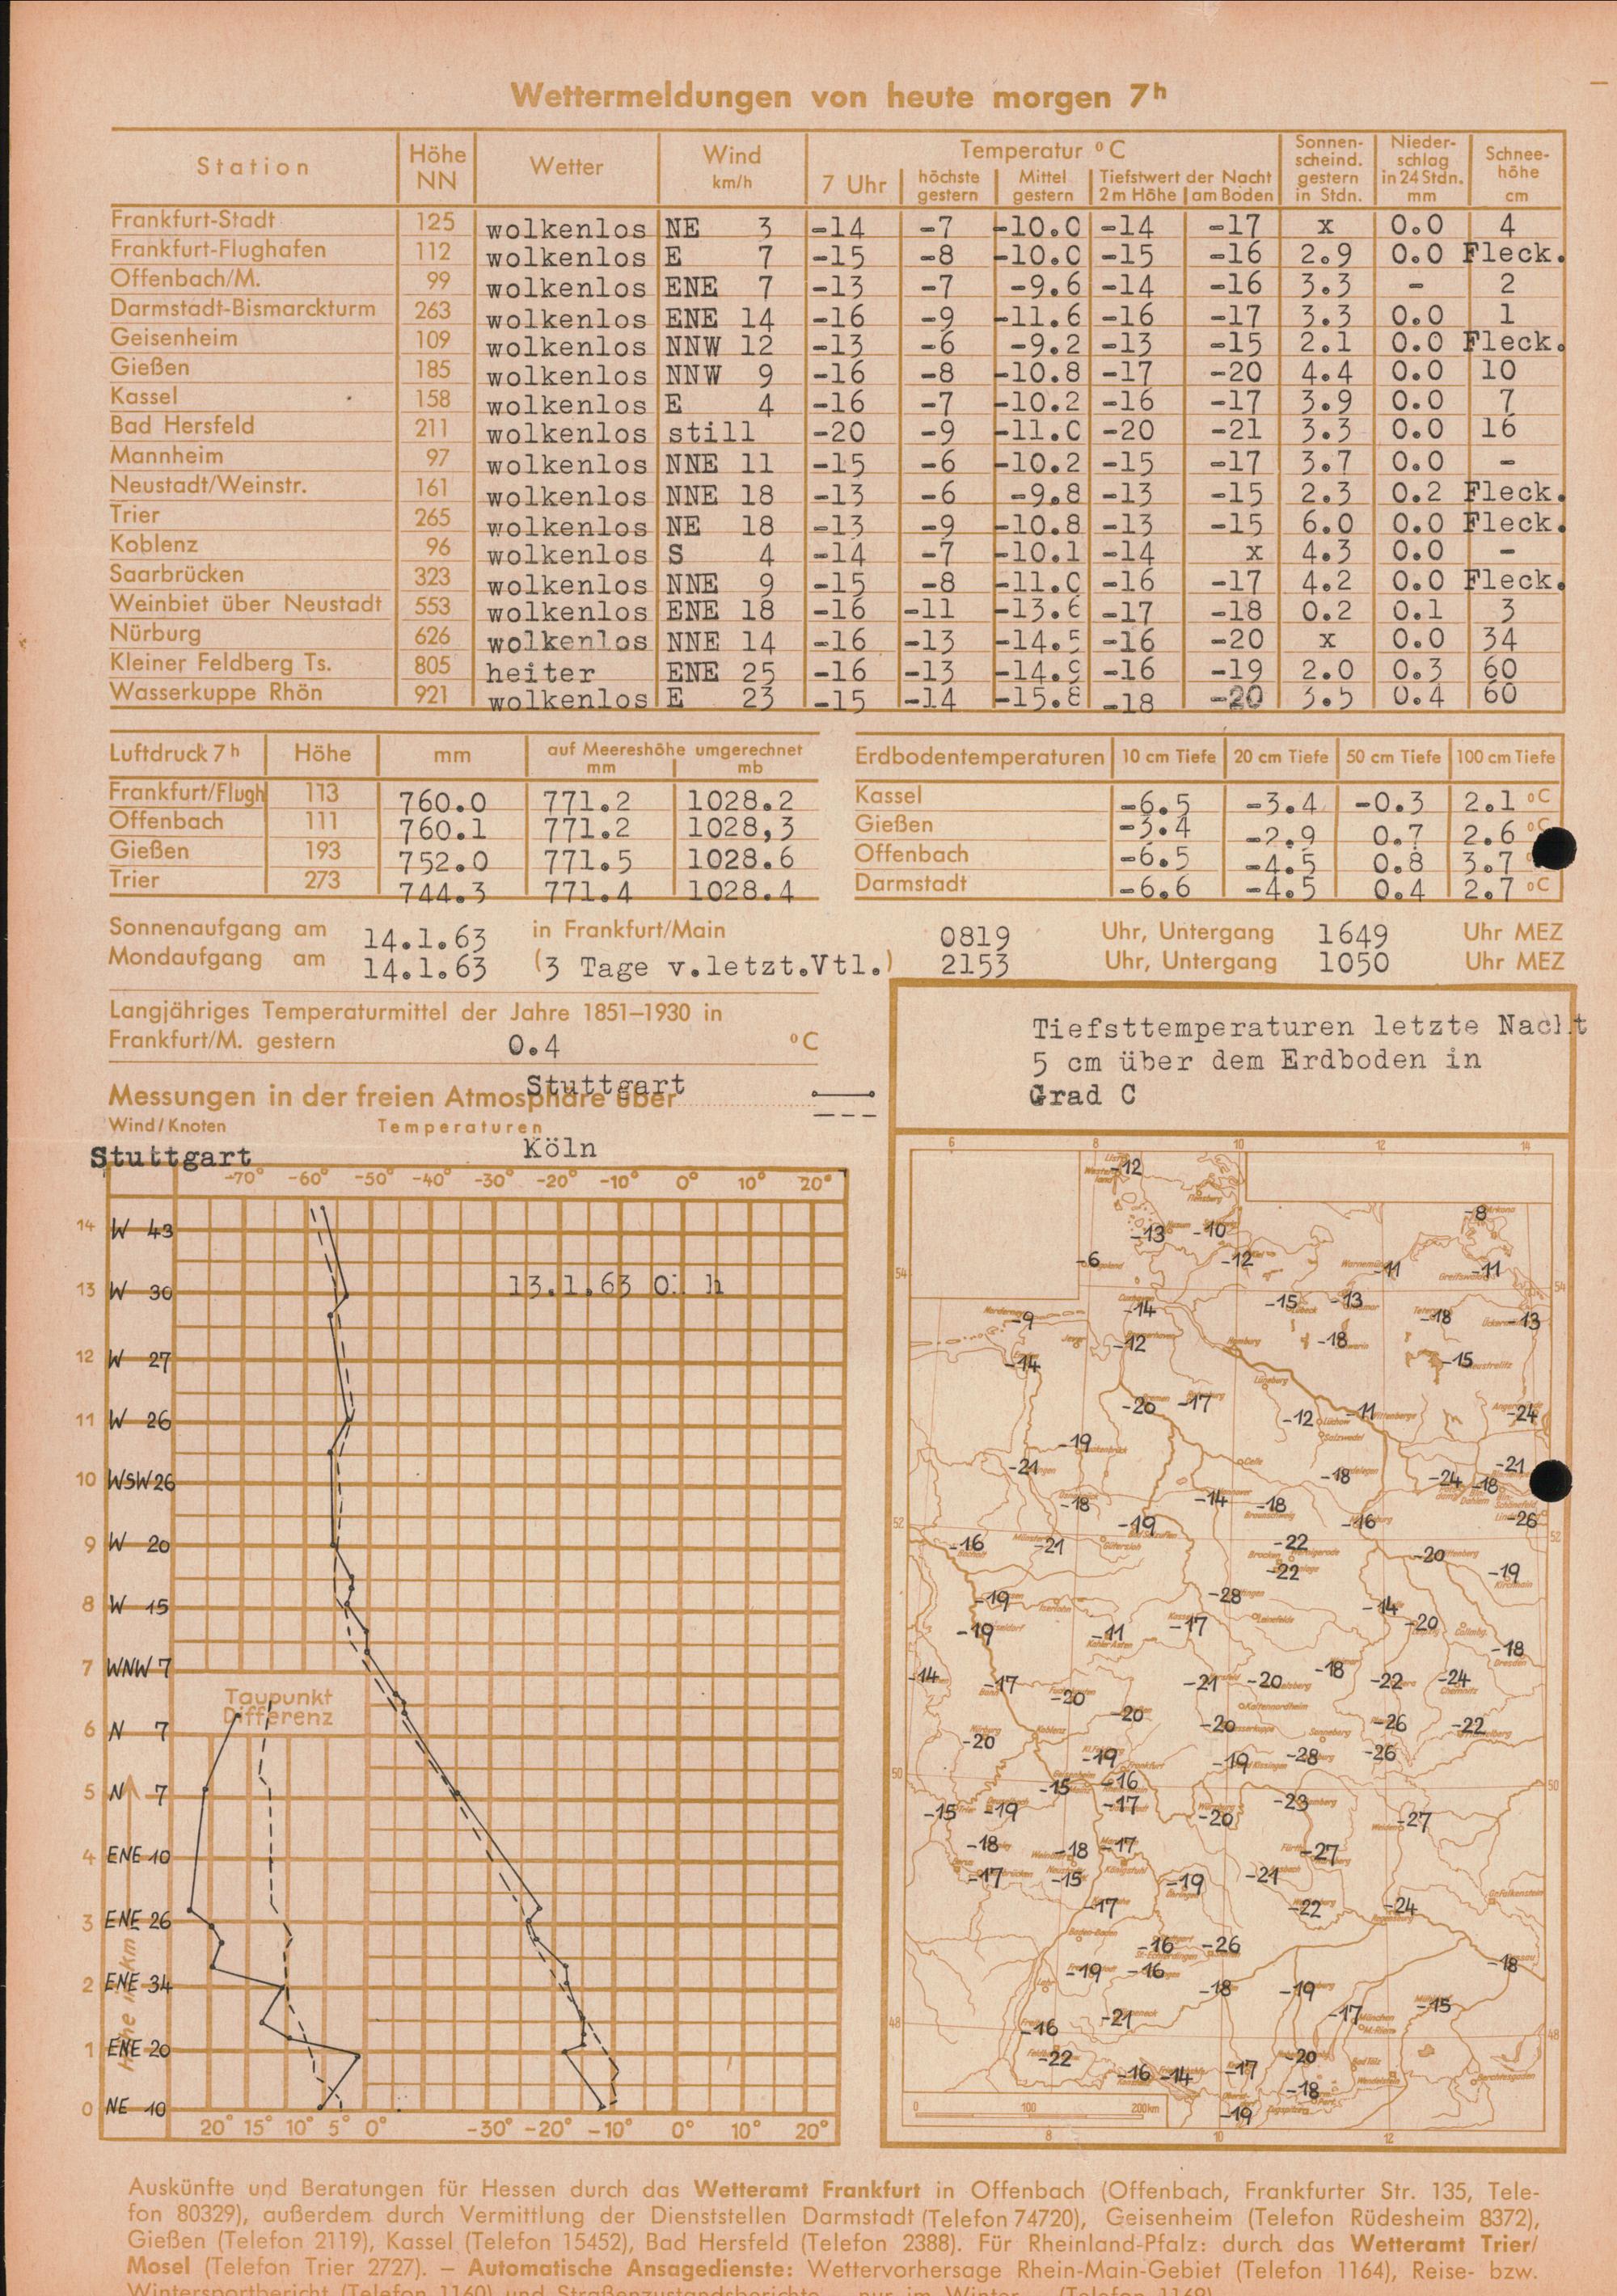 Wettermeldungen von heute morgen 7h
Station Höhe NN Wetter Wind km/h Temperatur °C Sonnenscheind. gestern in Stdn. Niederschlag in 24 Stdn. mm Schneehöhe cm
7 Uhr höchste gestern Mittel gestern Tiefstwert der Nacht 2m Höhe am Boden
Frankfurt-Stadt 125 wolkenlos NE 3 -14 -7 -10.0 -14 -17 x 0.0 4
Frankfurt-Flughafen 112 wolkenlos E 7 -15 -8 -10.0 -15 -16 2.9 0.0 Fleck.
Offenbach/M. 99 wolkenlos ENE 7 -13 -7 -9.6 -14 -16 3.3 - 2
Darmstadt-Bismarckturm 263 wolkenlos ENE 14 -16 -9 -11.6 -16 -17 3.3 0.0 1
Geisenheim 109 wolkenlos NNW 12 -13 -6 -9.2 -13 -15 2.1 0.0 Fleck.
Gießen 185 wolkenlos NNW 9 -16 -8 -10.8 -17 -20 4.4 0.0 10
Kassel 158 wolkenlos E 4 -16 -7 -10.2 -16 -17 3.9 0.0 7
Bad Hersfeld 211 wolkenlos still -20 -9 -11.0 -20 -21 3.3 0.0 16
Mannheim 97 wolkenlos NNE 11 -15 -6 -10.2 -15 -17 3.7 0.0 -
Neustadt/Weinstr. 161 wolkenlos NNE 18 -13 -6 -9.8 -13 -15 2.3 0.2 Fleck.
Trier 265 wolkenlos NE 18 -13 -9 -10.8 -13 -15 6.0 0.0 Fleck.
Koblenz 96 wolkenlos S 4 -14 -7 -10.1 -14 x 4.3 0.0 -
Saarbrücken 323 wolkenlos NNE 9 -15 -8 -11.0 -16 -17 4.2 0.0 Fleck.
Weinbiet über Neustadt 553 wolkenlos ENE 18 -16 -11 -13.6 -17 -18 0.2 0.1 3
Nürburg 626 wolkenlos NNE 14 -16 -13 -14.5 -16 -20 x 0.0 34
Kleiner Feldberg Ts. 805 heiter ENE 25 -16 -13 -14.9 -16 -19 2.0 0.3 60
Wasserkuppe Rhön 921 wolkenlos E 23 -15 -14 -15.8 -18 -20 3.5 0.4 60
Luftdruck 7h Höhe mm auf Meereshöhe umgerechnet mm mb
Frankfurt/Flugh 113 760.0 771.2 1028.2
Offenbach 111 760.1 771.2 1028,3
Gießen 193 752.0 771.5 1028.6
Trier 273 744.3 771.4 1028.4
Erdbodentemperaturen 10 cm Tiefe 20 cm Tiefe 50 cm Tiefe 100 cm Tiefe
Kassel -6.5 -3.4 -0.3 2.1 °C
Gießen -3.4 -2.9 0.7 2.6 °C
Offenbach -6.5 -4.5 0.8 3.7
Darmstadt -6.6 -4.5 0.4 2.7 °C
Sonnenaufgang am 14.1.63 in Frankfurt/Main 0819 Uhr, Untergang 1649 Uhr MEZ
Mondaufgang am 14.1.63 (3 Tage v.letzt.Vtl.) 2153 Uhr, Untergang 1050 Uhr MEZ
Langjähriges Temperaturmittel der Jahre 1851–1930 in
Frankfurt/M. gestern 0.4 °C
Messungen in der freien Atmosphäre über Stuttgart
Wind/Knoten Temperaturen
Stuttgart Köln
-70° -60° -50° -40° -30° -20° -10° 0° 10° 20°
14 W 43
13 W 30 13.1.63 01 h
12 W 27
11 W 26
10 WSW 26
9 W 20
8 W 15
7 WNW 7
Taupunkt
Differenz
6 N 7
5 N 7
4 ENE 10
3 ENE 26
2 ENE 34
1 ENE 20
0 NE 10
Höhe in km
20° 15° 10° 5° 0° -30° -20° -10° 0° 10° 20°
Tiefsttemperaturen letzte Nacht
5 cm über dem Erdboden in
Grad C
6 8 10 12 14
-12
-8
-13 -10
-6 -12 -11 -11
54 54
-14 -15 -13
-9 -18 -13
-12 -18
-14 -15
-20 -17 -12 -11 -24
-19
-21 -18 -24 -18 -21
-18 -14 -18
-19 -16 -26
52 52
-16 -21 -22
-22 -20 -19
-19 -28 -14
-19 -11 -17 -20
-18
-14 -17 -21 -20 -18 -22 -24
-20
-20 -20 -26 -22
-20 -19 -19 -28 -26
50 -15 -16 50
-15 -19 -17 -20 -23 -27
-18 -18 -17 -27
-17 -15 -19 -21
-17 -22 -24
-16 -26
-19 -16 -18
-18 -19
-21 -17 -15
48 -16 48
-22 -20
-16 -14 -17
-18
-19
0 100 200km
8 10 12
Auskünfte und Beratungen für Hessen durch das Wetteramt Frankfurt in Offenbach (Offenbach, Frankfurter Str. 135, Tele-
fon 80329), außerdem durch Vermittlung der Dienststellen Darmstadt (Telefon 74720), Geisenheim (Telefon Rüdesheim 8372),
Gießen (Telefon 2119), Kassel (Telefon 15452), Bad Hersfeld (Telefon 2388). Für Rheinland-Pfalz: durch das Wetteramt Trier/
Mosel (Telefon Trier 2727). – Automatische Ansagedienste: Wettervorhersage Rhein-Main-Gebiet (Telefon 1164), Reise- bzw.
Wintersportbericht (Telefon 1160) und Straßenzustandsberichte – nur im Winter – (Telefon 1169).